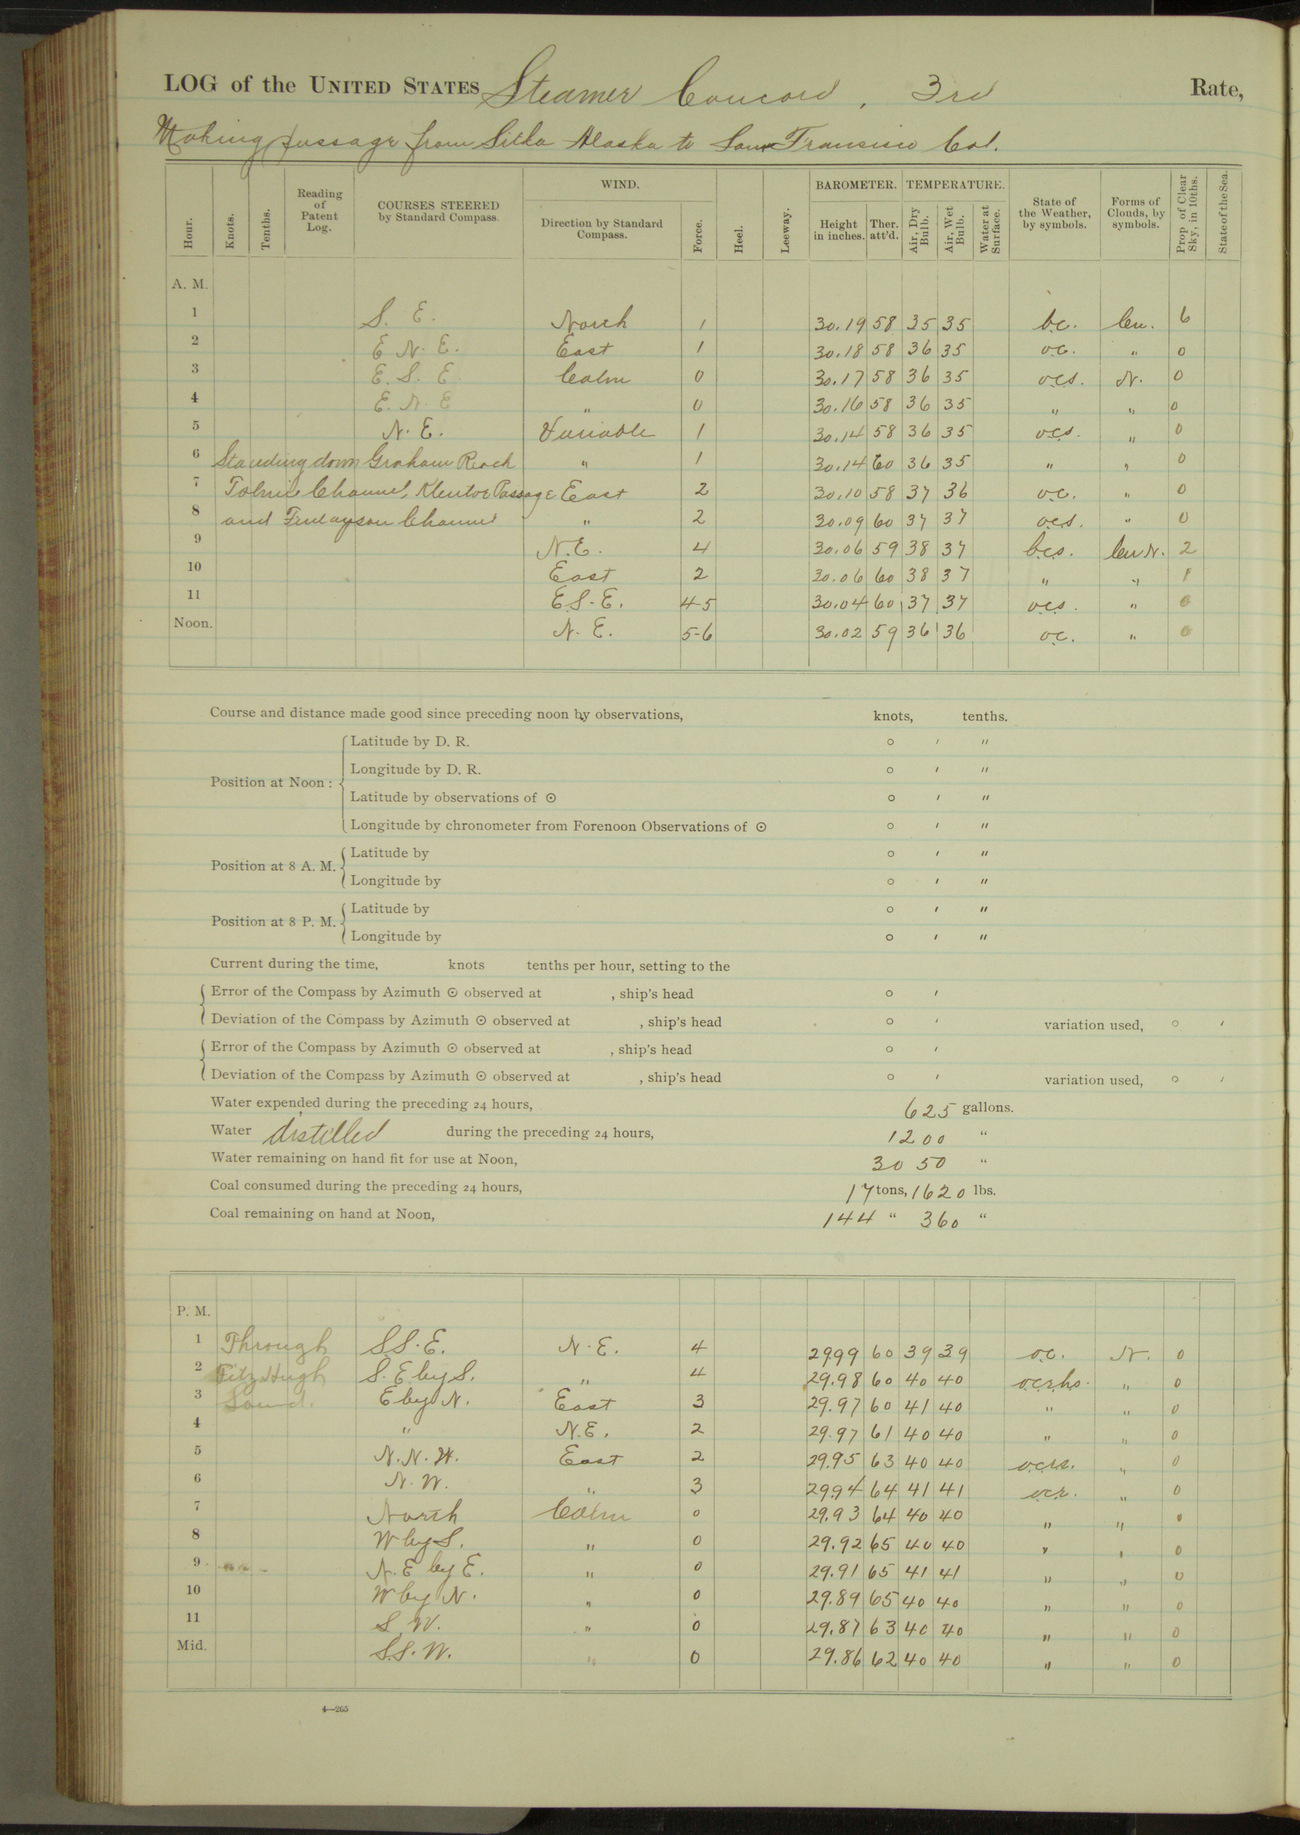 LOG of the UNITED STATES Steamer Concord, 3rd Rate,
Making passage from Sitka Alaska to San Francisco Cal.
Hour. Knots. Tenths. Reading of Patent Log. COURSES STEERED by Standard Compass. WIND. Direction by Standard Compass. Force. Heel. Leeway. BAROMETER. Height in inches. Ther. att'd. TEMPERATURE. Air, Dry Bulb. Air, Wet Bulb. Water at Surface. State of the Weather, by symbols. Forms of Clouds, by symbols. Prop. of Clear Sky, in 10ths. State of the Sea.
A. M.
1 S. E. North 1 30.19 58 35 35 b.c. Cu. 6
2 E. N. E. East 1 30.18 58 36 35 o.c. " 0
3 E. S. E. Calm 0 30.17 58 36 35 o.c.s. N. 0
4 E. N. E " 0 30.16 58 36 35 " " 0
5 N. E. Variable 1 30.14 58 36 35 o.c.s. " 0
6 Standing down Graham Reach " 1 30.14 60 36 35 " " 0
7 Tolmie Channel, Klentoe Passage East 2 30.10 58 37 36 o.c. " 0
8 and Finlayson Channel " 2 30.09 60 37 37 o.c.s. " 0
9 N.E. 4 30.06 59 38 37 b.c.s. Cu N. 2
10 East 2 30.06 60 38 37 " " 1
11 E.S.E. 4-5 30.04 60 37 37 o.c.s. " 0
Noon. N. E. 5-6 30.02 59 36 36 o.c. " 0
Course and distance made good since preceding noon by observations, knots, tenths.
Position at Noon:
Latitude by D. R. ° ′ ″
Longitude by D. R. ° ′ ″
Latitude by observations of ☉ ° ′ ″
Longitude by chronometer from Forenoon Observations of ☉ ° ′ ″
Position at 8 A. M.
Latitude by ° ′ ″
Longitude by ° ′ ″
Position at 8 P. M.
Latitude by ° ′ ″
Longitude by ° ′ ″
Current during the time, knots tenths per hour, setting to the
Error of the Compass by Azimuth ☉ observed at , ship's head ° ′
Deviation of the Compass by Azimuth ☉ observed at , ship's head ° ′ variation used, ° ′
Error of the Compass by Azimuth ☉ observed at , ship's head ° ′
Deviation of the Compass by Azimuth ☉ observed at , ship's head ° ′ variation used, ° ′
Water expended during the preceding 24 hours, 625 gallons.
Water distilled during the preceding 24 hours, 1200 "
Water remaining on hand fit for use at Noon, 3050 "
Coal consumed during the preceding 24 hours, 17 tons, 1620 lbs.
Coal remaining on hand at Noon, 144 " 360 "
P. M.
1 Through S.S.E. N. E. 4 29.99 60 39 39 o.c. N. 0
2 Fitz Hugh S. E by S. " 4 29.98 60 40 40 " 0
3 Sound. E by N. East 3 29.97 60 41 40 " " 0
4 " N.E. 2 29.97 61 40 40 " " 0
5 N. N. W. East 2 29.95 63 40 40 " 0
6 N. W. " 3 29.94 64 41 41 o.c.r. " 0
7 North Calm 0 29.93 64 40 40 " " 0
8 W by S. " 0 29.92 65 40 40 " " 0
9 N. E by E. " 0 29.91 65 41 41 " " 0
10 W by N. " 0 29.89 65 40 40 " " 0
11 S. W. " 0 29.87 63 40 40 " " 0
Mid. S.S.W. " 0 29.86 62 40 40 " " 0
4—265